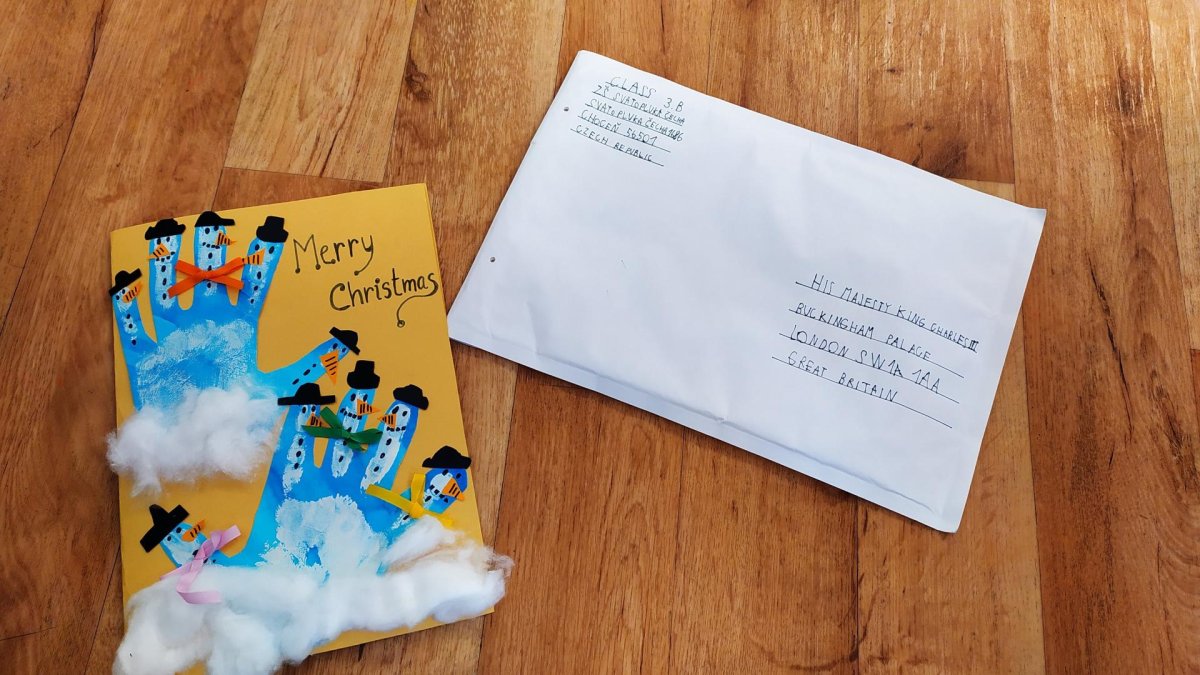 Merry
Christmas
CLASS 3.B
ZŠ SVATOPLUKA ČECHA
SVATOPLUKA ČECHA 1686
CHOCEŇ 56501
CZECH REPUBLIC
HIS MAJESTY KING CHARLES III
BUCKINGHAM PALACE
LONDON SW1A 1AA
GREAT BRITAIN